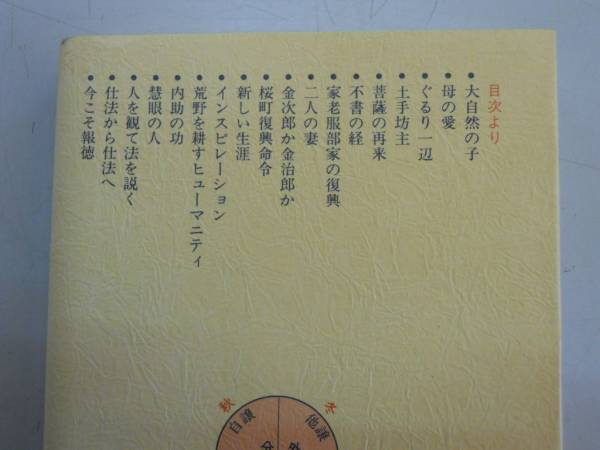 目次より
●大自然の子
●母の愛
●ぐるり一辺
●土手坊主
●菩薩の再来
●不書の経
●家老服部家の復興
●二人の妻
●金次郎か金治郎か
●桜町復興命令
●新しい生涯
●インスピレーション
●荒野を耕すヒューマニティ
●内助の功
●慧眼の人
●人を観て法を説く
●仕法から仕法へ
●今こそ報徳
冬
他譲
秋
自譲